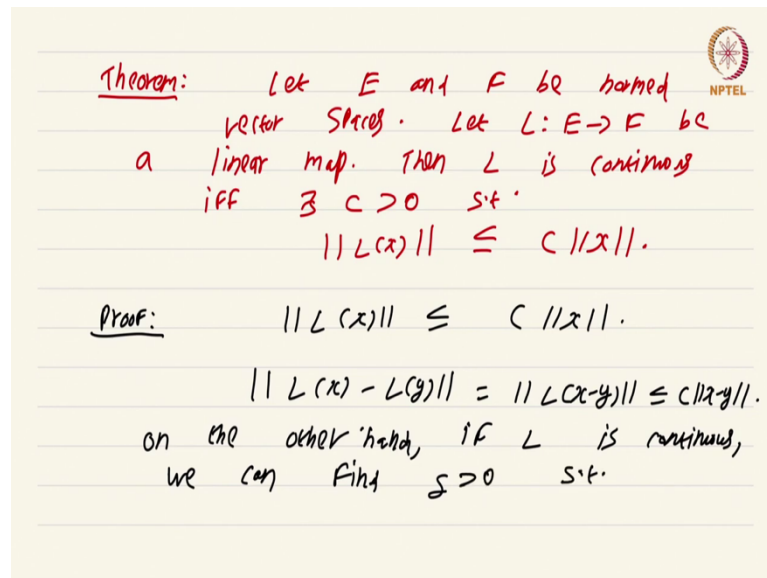 Theorem: Let E and F be normed
NPTEL
vector spaces. Let L: E → F be
a linear map. Then L is continuous
iff ∃ C > 0 s.t.
||L(x)|| ≤ C ||x||.
Proof: ||L(x)|| ≤ C ||x||.
||L(x) - L(y)|| = ||L(x-y)|| ≤ C||x-y||.
on the other hand, if L is continuous,
we can find δ > 0 s.t.